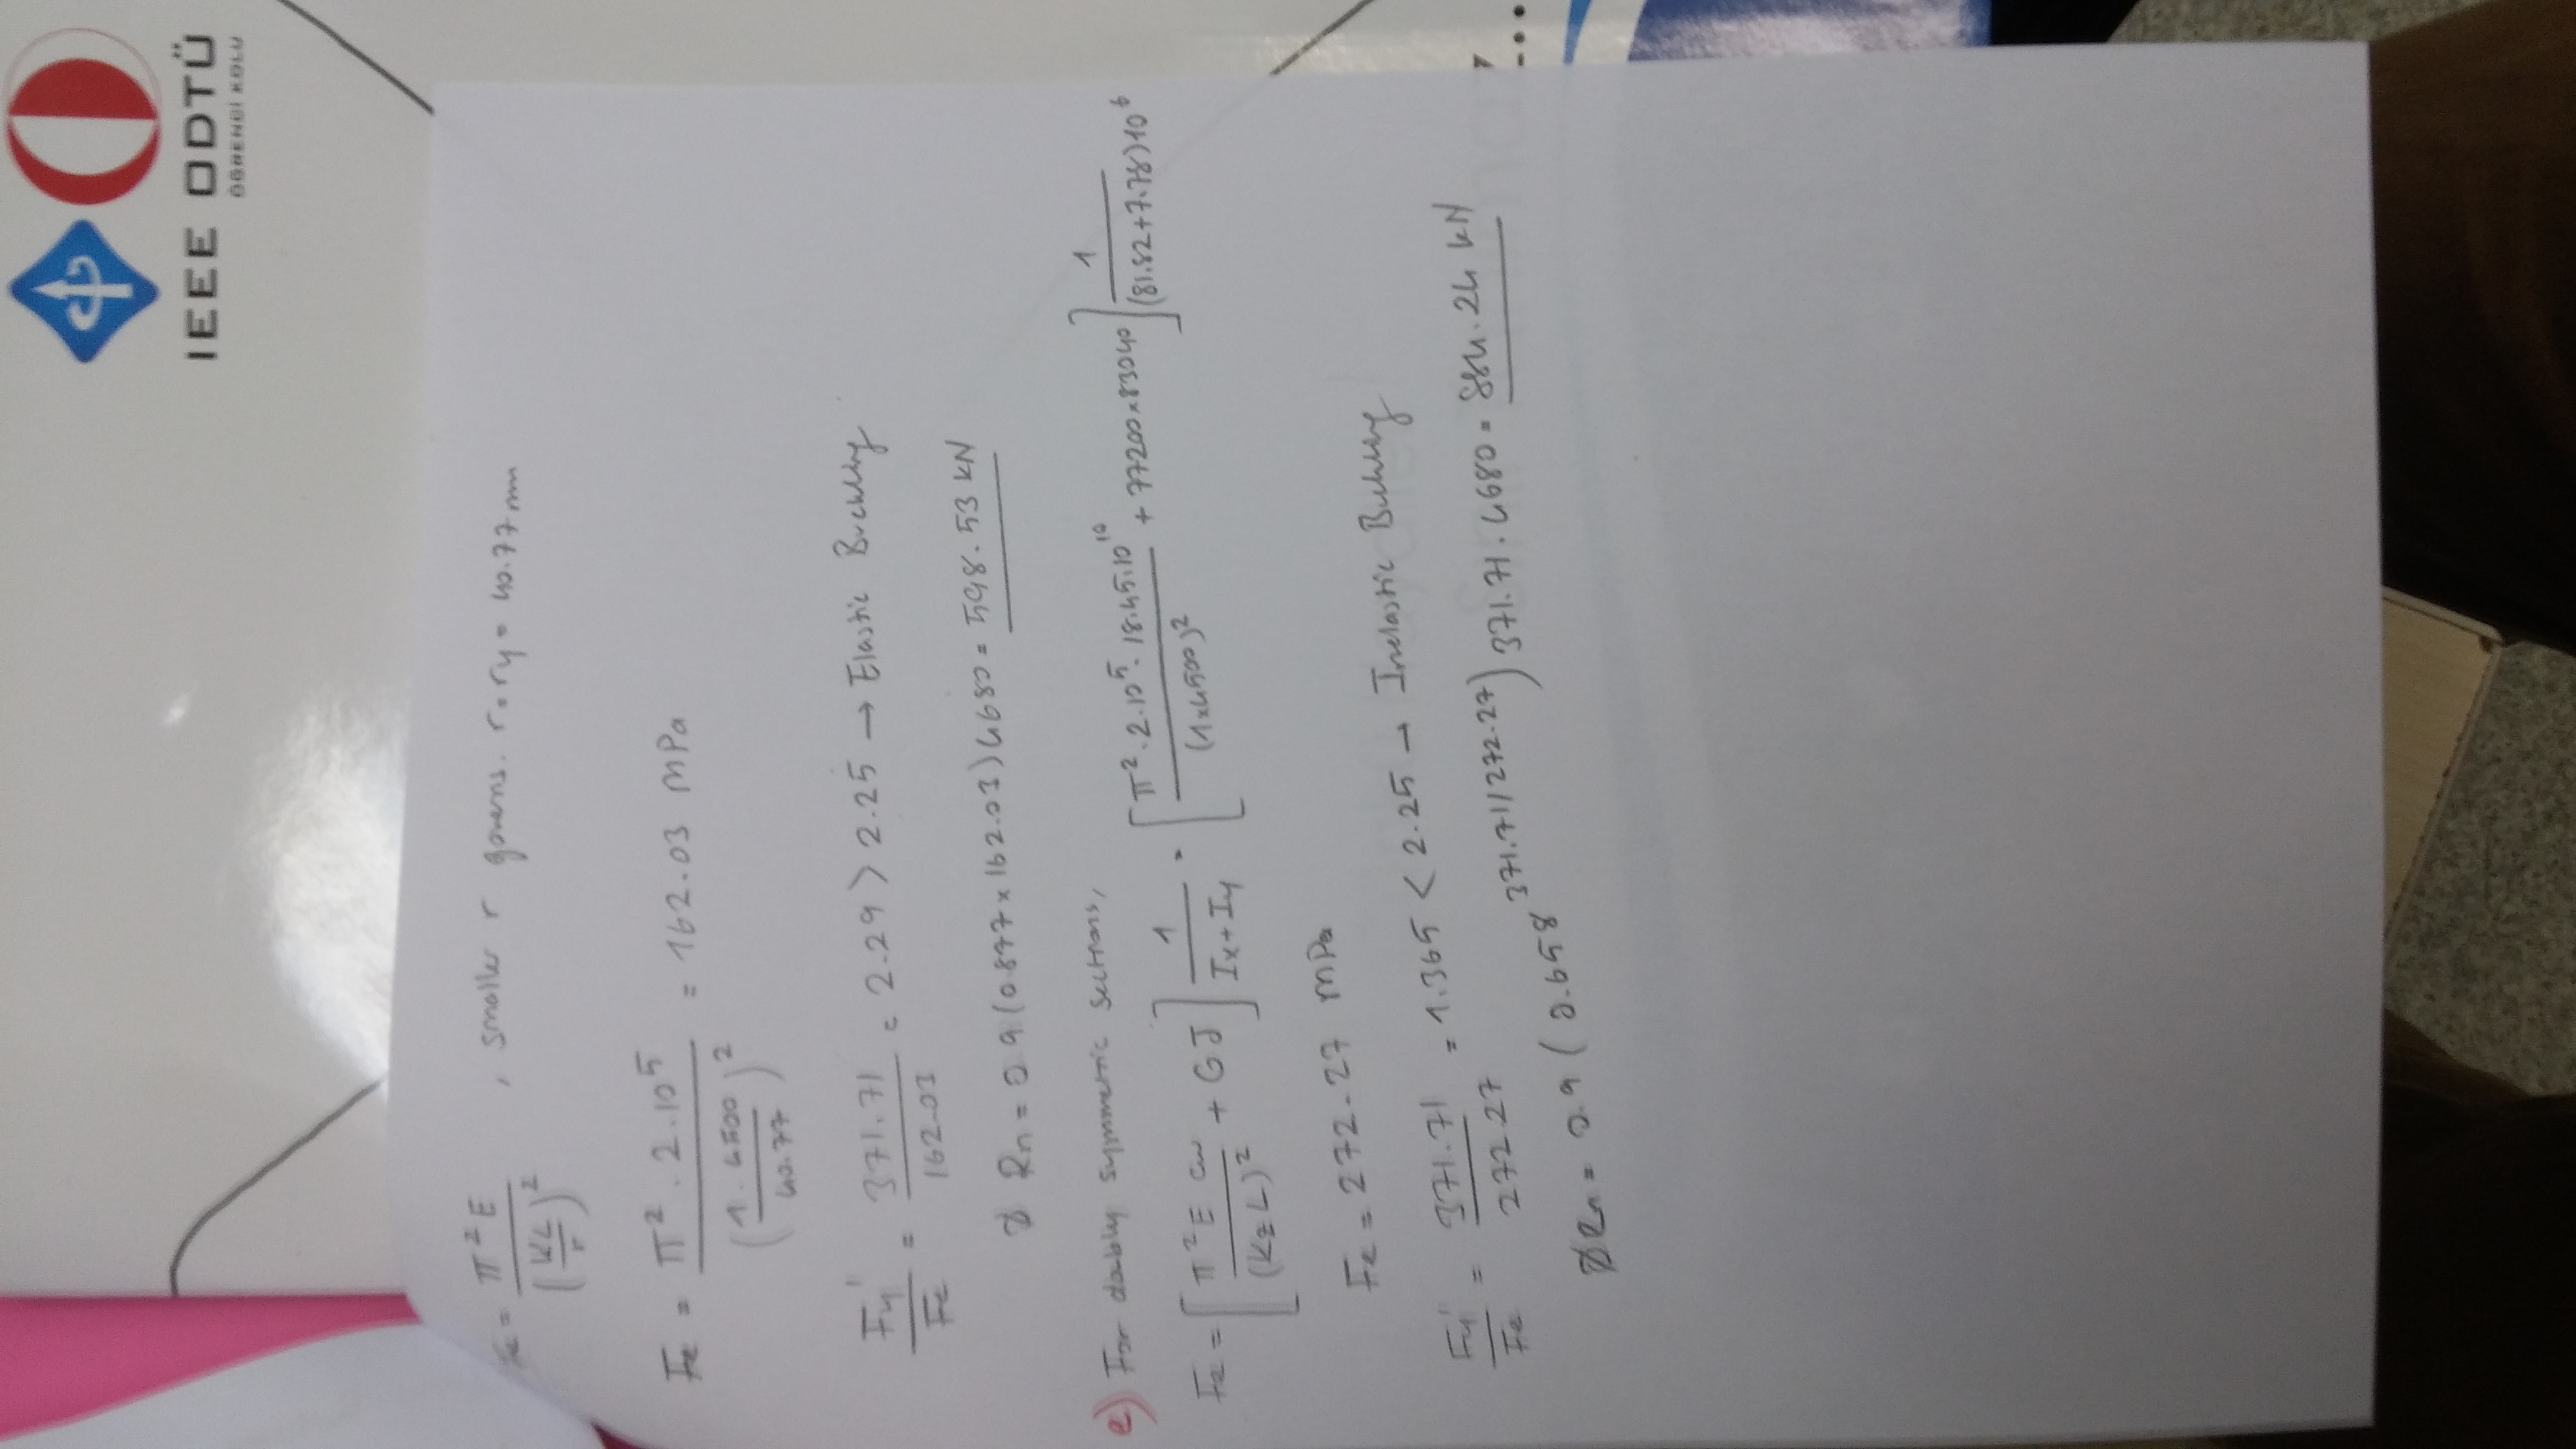 IEEE ODTÜ
ÖĞRENCİ KOLU
Fe = π²E / (KL/r)² , smaller r governs. r = ry = 40.77 mm
Fe = π² . 2.10⁵ / (1 . 4500 / 40.77)² = 162.03 MPa
Fy' / Fe = 371.71 / 162.03 = 2.29 > 2.25 → Elastic Buckling
Ø Rn = 0.9 (0.877 x 162.03) 4680 = 598.53 kN
e) For doubly symmetric sections,
Fe = [π²E Cw / (Kz L)² + GJ] 1 / (Ix + Iy) = [π² . 2.10⁵ . 18.45.10¹⁰ / (1x4500)² + 77200x83040] 1 / (81.82+7.78)10⁶
Fe = 272.27 MPa
Fy'' / Fe = 371.71 / 272.27 = 1.365 < 2.25 → Inelastic Buckling
ØRn = 0.9 (0.658^371.71/272.27) 371.71 . 4680 = 884.24 kN